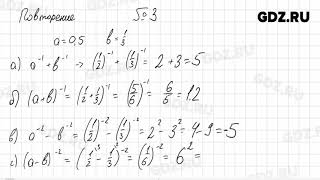 GDZ.RU
Повторение № 3
a = 0,5 b = 1/3
а) a⁻¹ + b⁻¹ → (1/2)⁻¹ + (1/3)⁻¹ = 2 + 3 = 5
б) (a+b)⁻¹ = (1/2 + 1/3)⁻¹ = (5/6)⁻¹ = 6/5 = 1.2
в) a⁻² - b⁻² = (1/2)⁻² - (1/3)⁻² = 2² - 3² = 4 - 9 = -5
г) (a-b)⁻² = (1/2 - 1/3)⁻² = (1/6)⁻² = 6² =